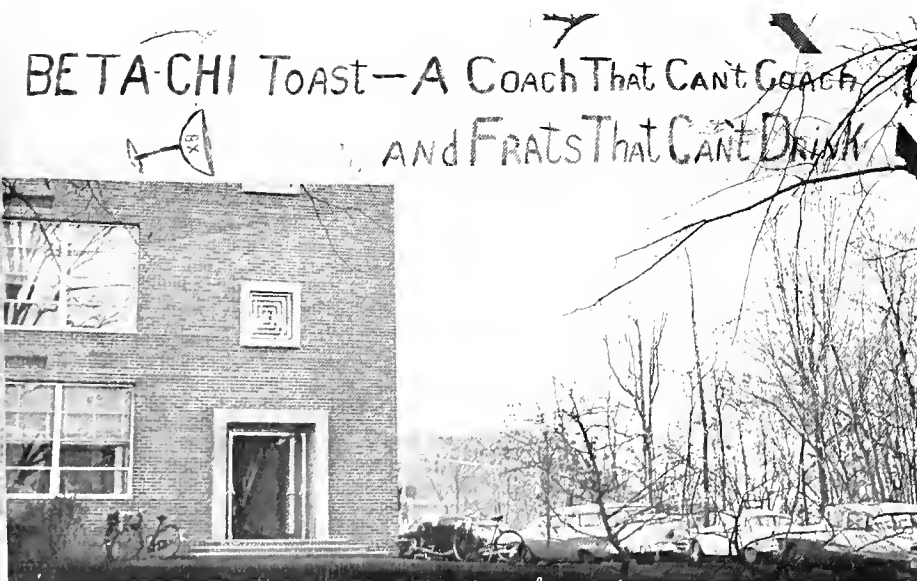 BETA-CHI TOAST—A COACH THAT CAN'T COACH
BX
AND FRATS THAT CAN'T DRINK